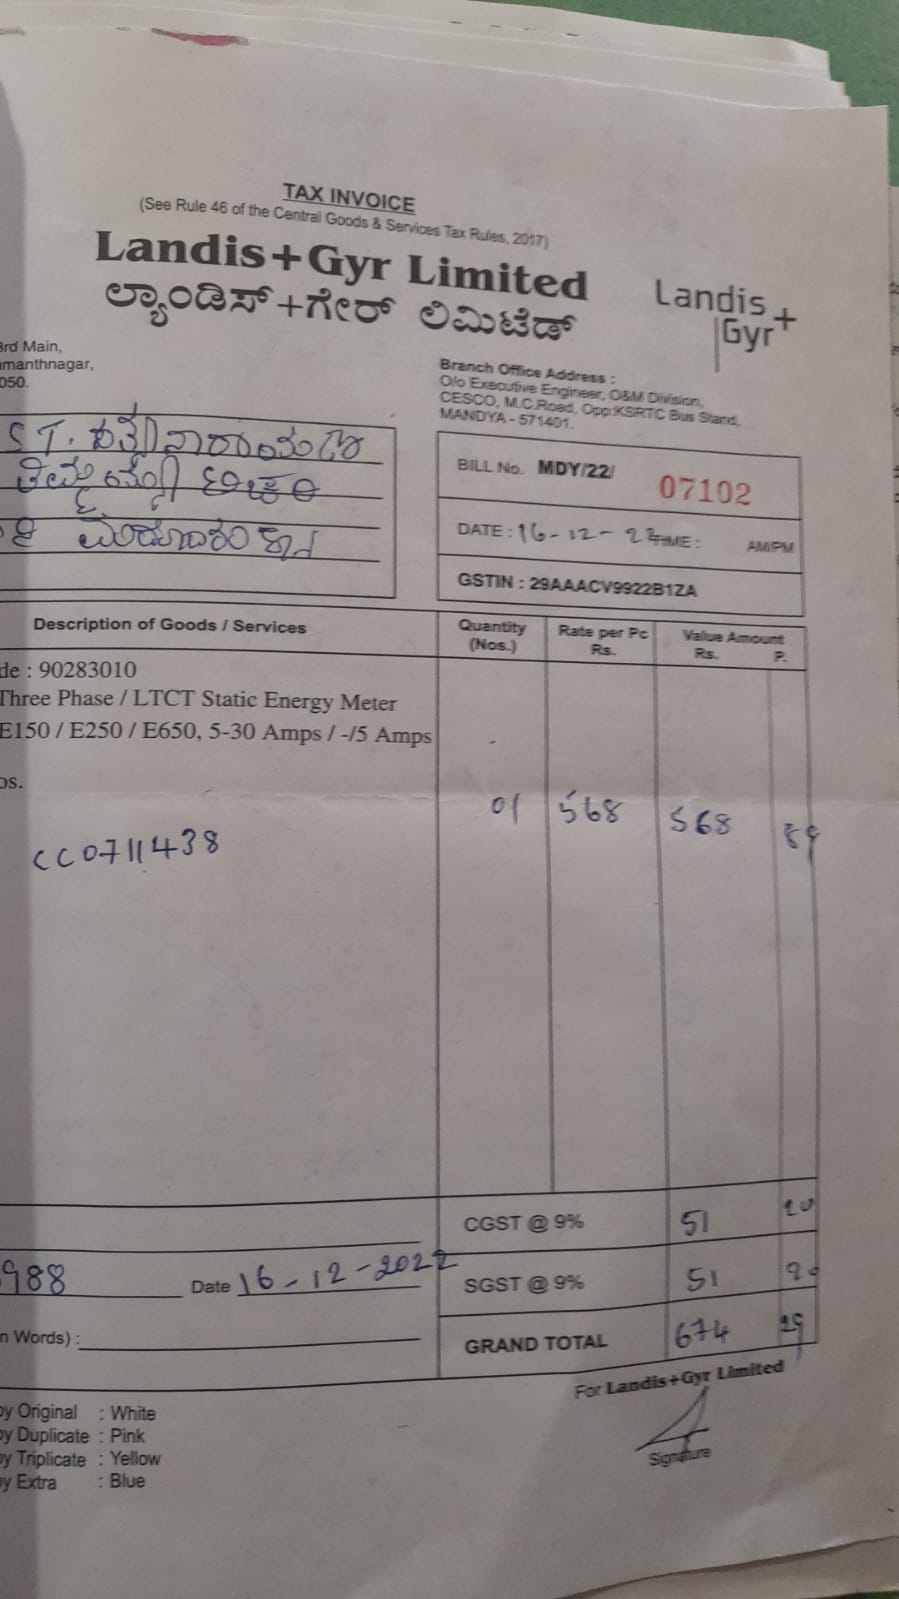 TAX INVOICE
(See Rule 46 of the Central Goods & Services Tax Rules, 2017)
Landis+Gyr Limited
ಲ್ಯಾಂಡಿಸ್+ಗೇರ್ ಲಿಮಿಟೆಡ್
Landis+
Gyr
3rd Main,
manthnagar,
050.
Branch Office Address :
O/o Executive Engineer, O&M Division,
CESCO, M.C.Road, Opp:KSRTC Bus Stand,
MANDYA - 571401.
S T.
BILL No. MDY/22/ 07102
DATE : 16-12-22 TIME : AM/PM
GSTIN : 29AAACV9922B1ZA
Description of Goods / Services Quantity (Nos.) Rate per Pc Rs. Value Amount Rs. P.
de : 90283010
Three Phase / LTCT Static Energy Meter
E150 / E250 / E650, 5-30 Amps / -/5 Amps
os.
01 568 568 89
CC0711438
CGST @ 9% 51 20
988 Date 16-12-2022
SGST @ 9% 51 20
n Words) :
GRAND TOTAL 674 29
For Landis+Gyr Limited
Signature
py Original : White
py Duplicate : Pink
py Triplicate : Yellow
py Extra : Blue